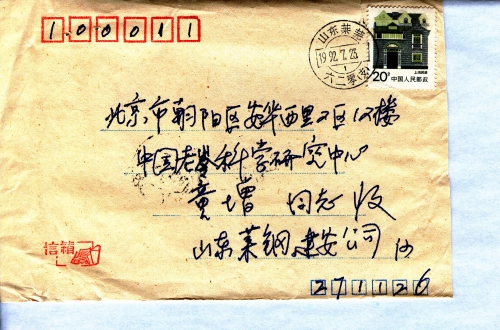 100011
山东莱芜
1992.7.23
1
六二零(支)
上海民居
20分 中国人民邮政
北京市朝阳区安华西里2区12楼
中国老龄科学研究中心
童增 同志 收
信箱
山东莱钢建安公司
271126